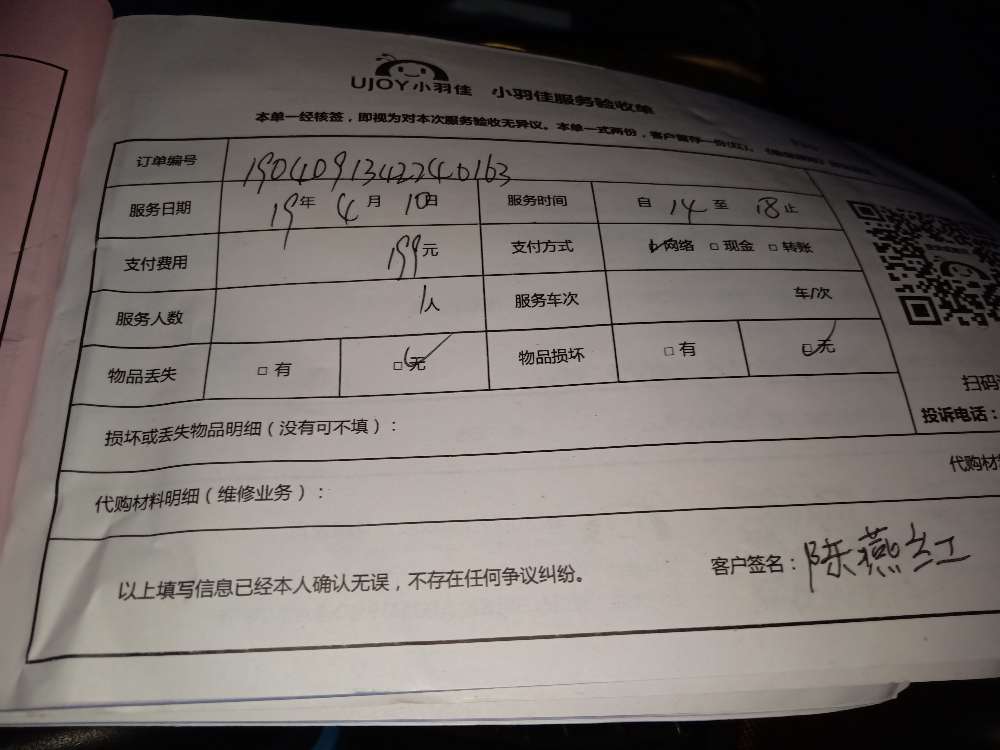 UJOY小羽佳 小羽佳服务验收单
本单一经核签，即视为对本次服务验收无异议。本单一式两份，客户留存一份(红)。
订单编号 19040913422240163
服务日期 19年 4月 10日 服务时间 自 14 至 18止
支付费用 199元 支付方式 ☑网络 □现金 □转账
服务人数 1人 服务车次 车/次
物品丢失 □有 ☑无 物品损坏 □有 ☑无
扫码
投诉电话：
损坏或丢失物品明细（没有可不填）：
代购材料明细（维修业务）： 代购材
以上填写信息已经本人确认无误，不存在任何争议纠纷。 客户签名：陈燕红